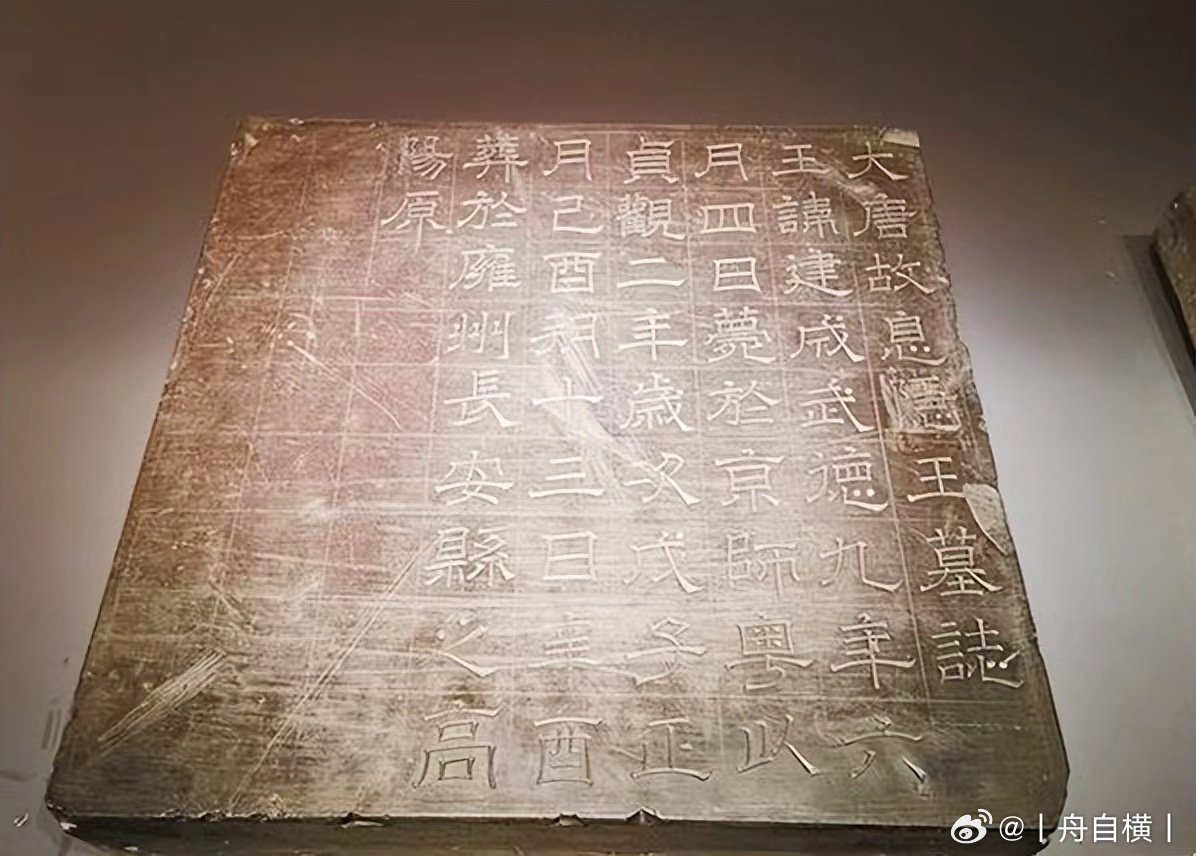 大唐故息隱王墓誌
王諱建成武德九年六
月四日薨於京師粵以
貞觀二年歲次戊子正
月己酉朔十三日辛酉
葬於雍州長安縣之高
陽原
@丨舟自横丨